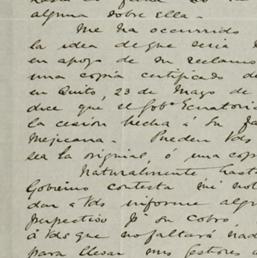 alguna sobre ella.
Me ha ocurrido
la idea de que sería
en apoyo de su reclamo
una copia certificada d
en Quito, 23 de Mayo de
dice que el Gobº Ecuatoria
la cesión hecha á Su
Mejicana. Pueden Vds
sea la original, ó una cop
Naturalmente hast
Gobierno contesta mi not
dar á Vds informe algu
respectivo
á Vds que no faltará nad
para llevar mis gestiones